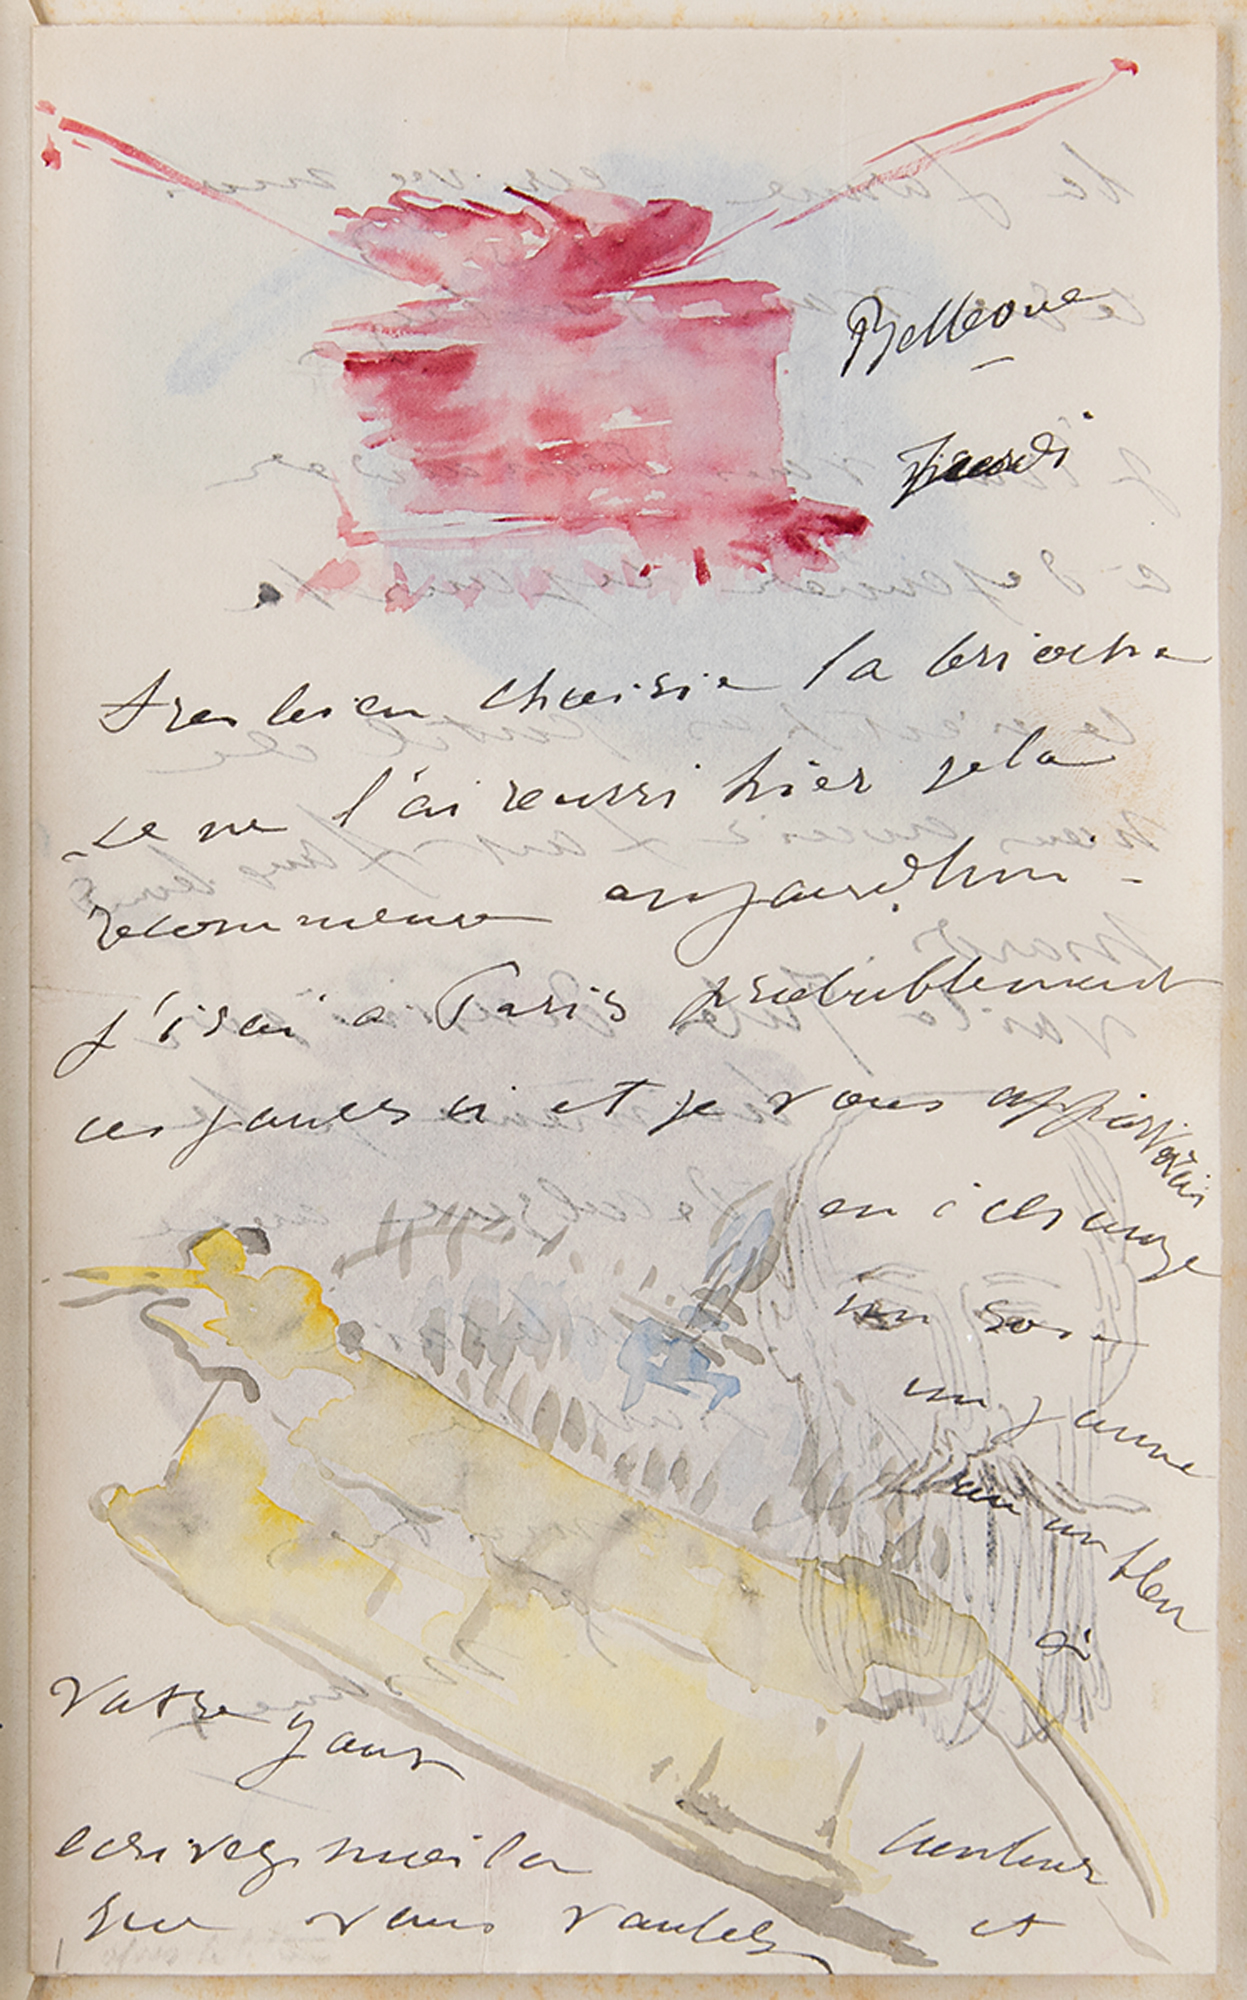 Bellevue
Jeudi
tres bien choisie la brioche
je ne l'ai reussi hier je la
recommence aujourdhui -
j'irai a Paris probablement
ces jours ci et je vous apporterai
en echange
un rose
un jaune
ou un bleu
à
votre gout
ecrivez moi la couleur
que vous voulez et